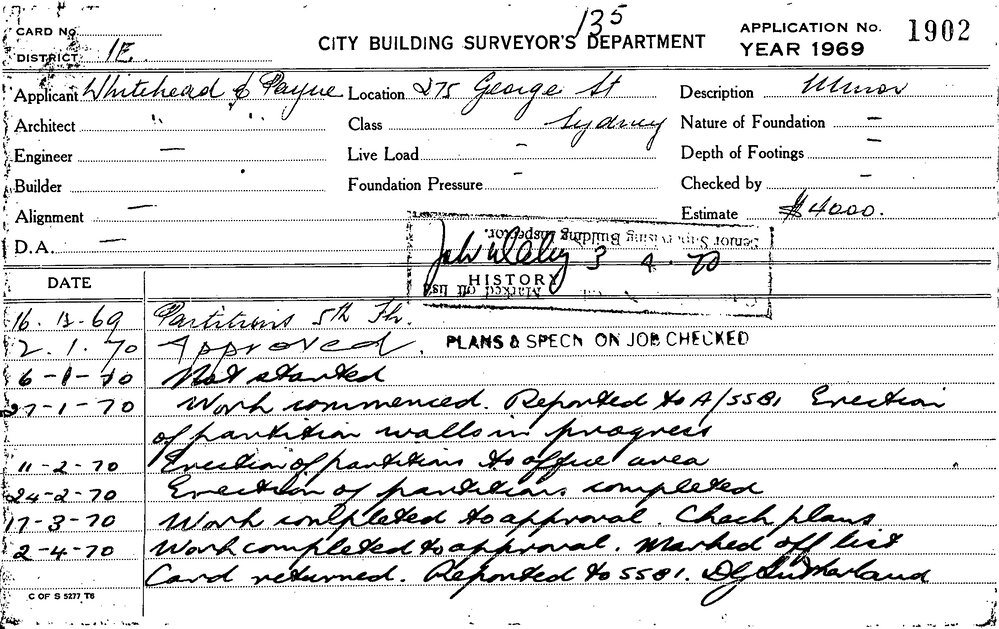 135
CARD No
CITY BUILDING SURVEYOR'S DEPARTMENT
APPLICATION No. 1902
DISTRICT 1E.
YEAR 1969
Applicant Whitehead & Payne Location 275 George St Description Minor
Architect " " Class Sydney Nature of Foundation —
Engineer — Live Load - Depth of Footings —
Builder Foundation Pressure - Checked by —
Alignment — Estimate $4000.
D.A. —
Senior Supervising Building Inspector.
3 4 70
DATE HISTORY
Marked off list
16. 12-69 Partitions 5th Flr.
2. 1. 70 Approved. PLANS & SPECN ON JOB CHECKED
6-1-70 Not started
27-1-70 Work commenced. Reported to A/SSBI Erection
of partition walls in progress
11-2-70 Erection of partitions to office area
24-2-70 Erection of partitions completed
17-3-70 Work completed to approval. Check plans
2-4-70 Work completed to approval. Marked off list
Card returned. Reported to SSBI. DG Sutherland
C OF S 5277 T6